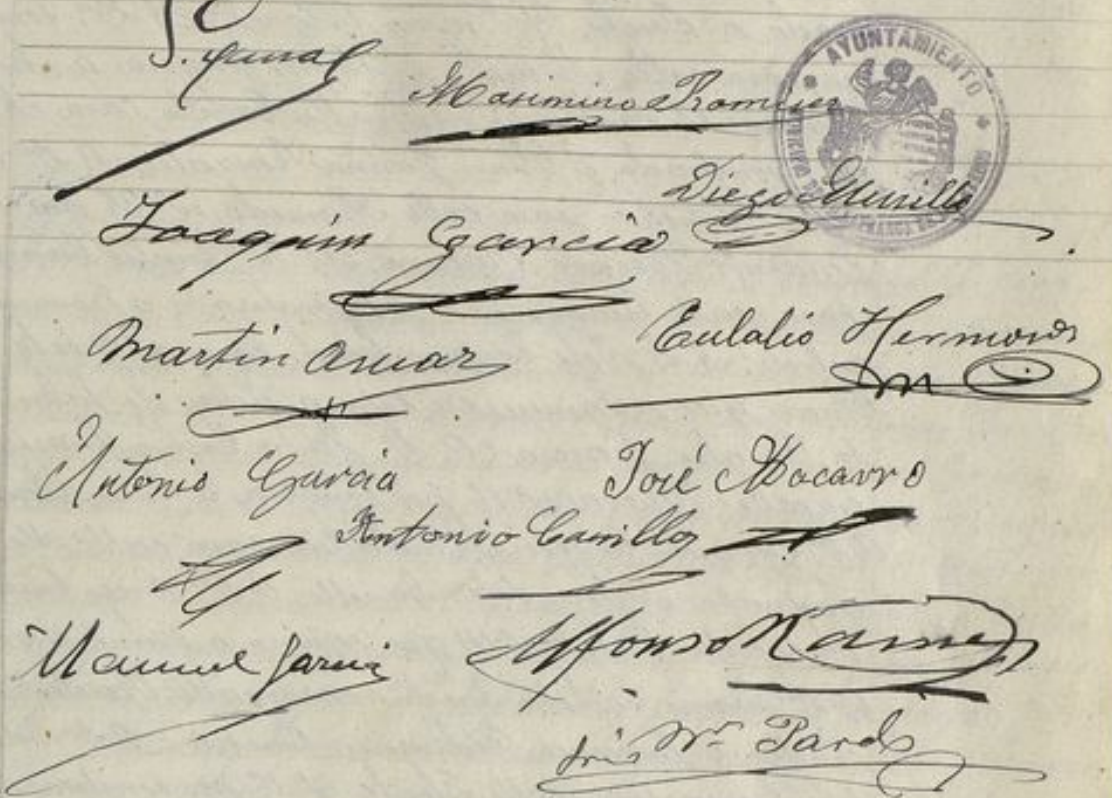 Maximino Romero
AYUNTAMIENTO
Diego Murillo
Joaquin Garcia
Martin Aznar
Eulalio Hermoso
Antonio Garcia
José Mocarro
Antonio Carrillo
Manuel Garcia
Alfonso Ramos
Mª Pardo